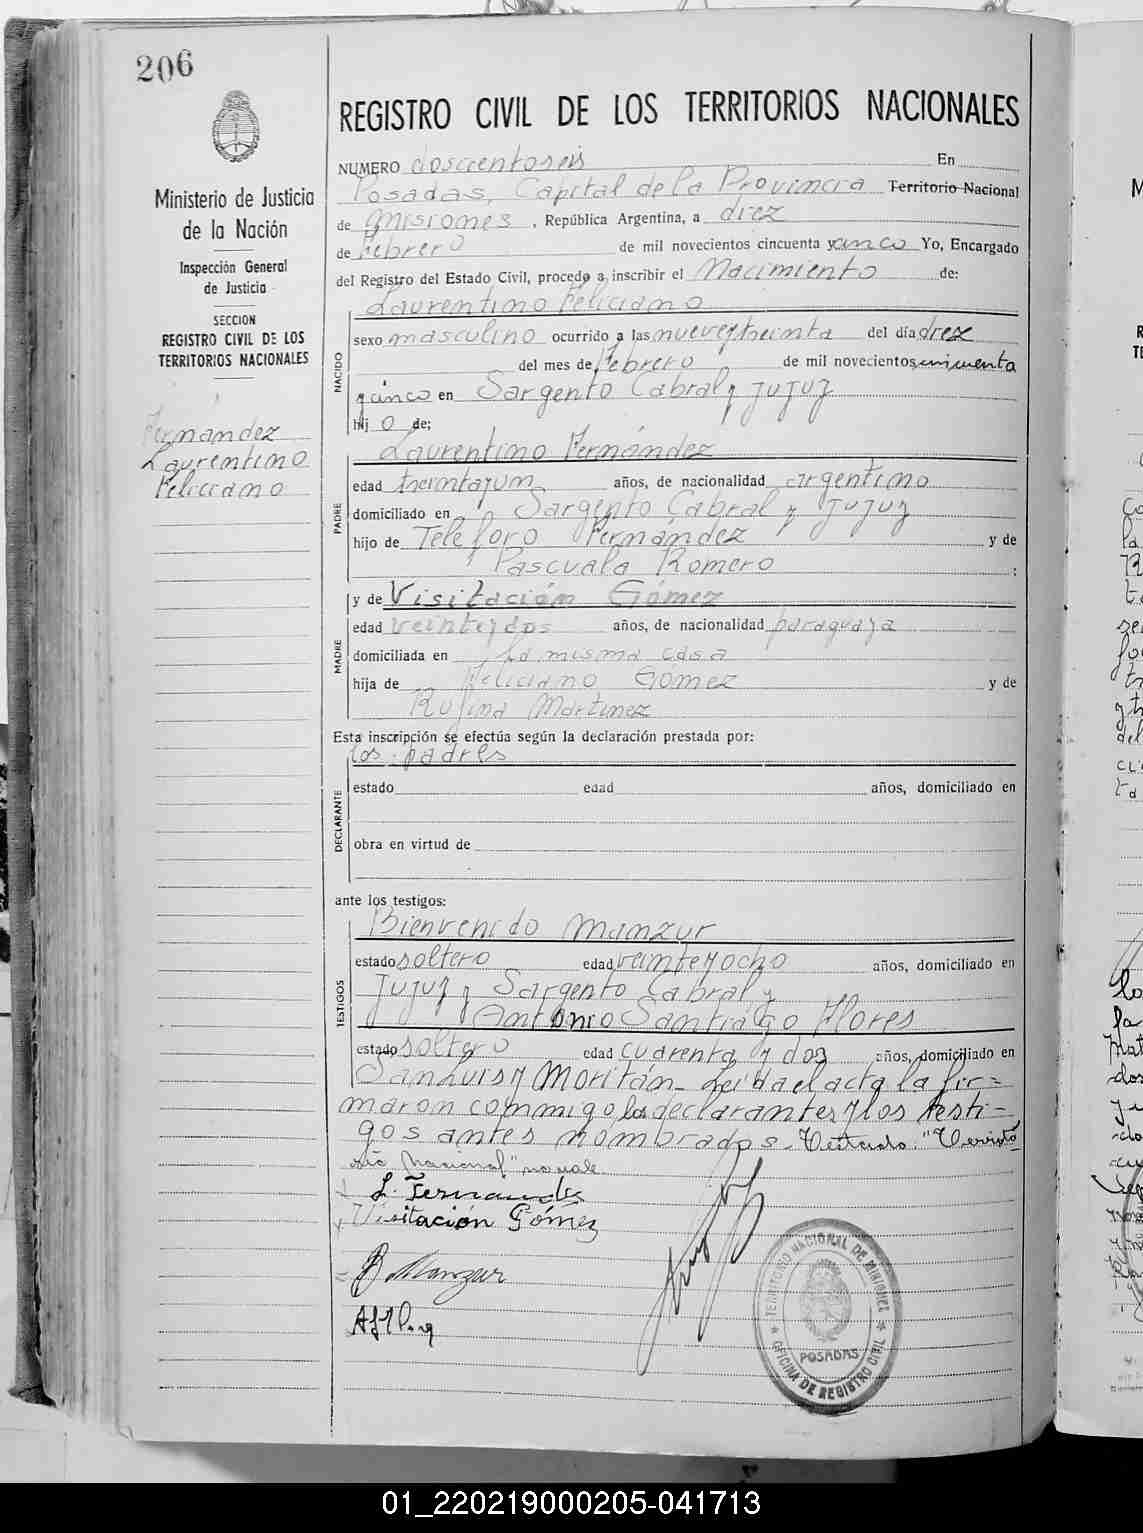 206
Ministerio de Justicia
de la Nación
Inspección General
de Justicia
SECCION
REGISTRO CIVIL DE LOS
TERRITORIOS NACIONALES
Fernández
Laurentino
Feliciano
REGISTRO CIVIL DE LOS TERRITORIOS NACIONALES
NUMERO doscientoseis En
Posadas, Capital de la Provincia Territorio Nacional
de Misiones, República Argentina, a diez
de Febrero de mil novecientos cincuenta ycinco Yo, Encargado
del Registro del Estado Civil, procedo a inscribir el Nacimiento de:
Laurentino Feliciano
NACIDO
sexo masculino ocurrido a las nueveytreinta del día diez
del mes de Febrero de mil novecientos cincuenta
ycinco en Sargento Cabral y Jujuy
hij o de;
Laurentino Fernández
PADRE
edad treintayun años, de nacionalidad argentino
domiciliado en Sargento Cabral y Jujuy
hijo de Teleforo Fernández y de
Pascuala Romero ;
y de Visitación Gómez
MADRE
edad veinteydos años, de nacionalidad paraguaya
domiciliada en La misma casa
hija de Feliciano Gómez y de
Rufina Martinez
Esta inscripción se efectúa según la declaración prestada por:
los padres
DECLARANTE
estado edad años, domiciliado en
obra en virtud de
ante los testigos:
Bienvenido Manzur
TESTIGOS
estado soltero edad veinteyocho años, domiciliado en
Jujuy y Sargento Cabral y
Antonio Santiago Flores
estado soltero edad cuarenta y dos años, domiciliado en
SanLuis y Moritán_ Leida el acta la fir=
maron conmigo los declarantes y los testi-
gos antes nombrados. Testado: "Territo
rio Nacional" no vale.
L. Fernandez
Visitación Gómez
B Manzur
TERRITORIO NACIONAL DE MISIONES
POSADAS
OFICINA DE REGISTRO CIVIL
01_220219000205-041713